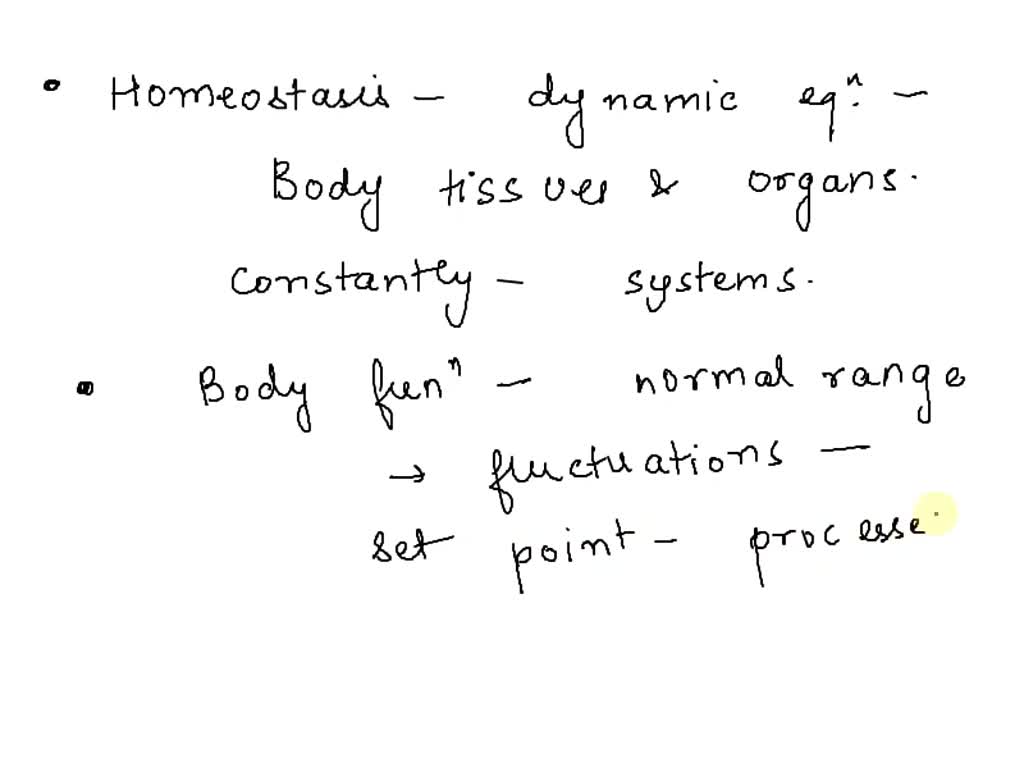 • Homeostasis – dynamic eqⁿ. –
Body tissues & organs.
constantly – systems.
• Body funⁿ – normal range
→ fluctuations –
set point – processe